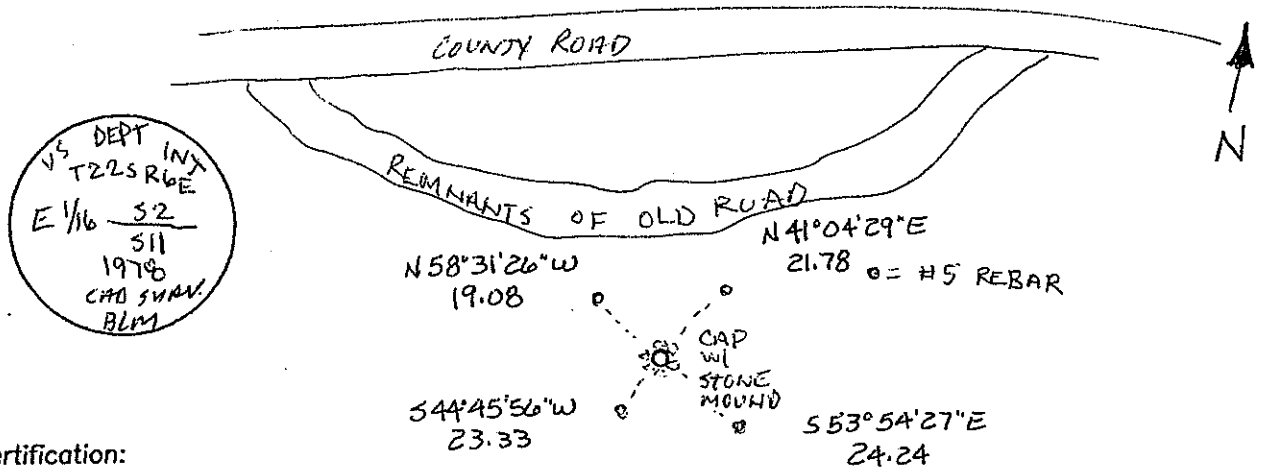 COUNTY ROAD
N
US DEPT INT
T22S R6E
E 1/16 S2
S11
1978
CAD SURV.
BLM
REMNANTS OF OLD ROAD
N 58°31'26"W
19.08
N 41°04'29"E
21.78
o = #5 REBAR
CAP
W/
STONE
MOUND
S 44°45'56"W
23.33
S 53°54'27"E
24.24
ertification: